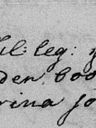 il: leg:
den boo
rina jo